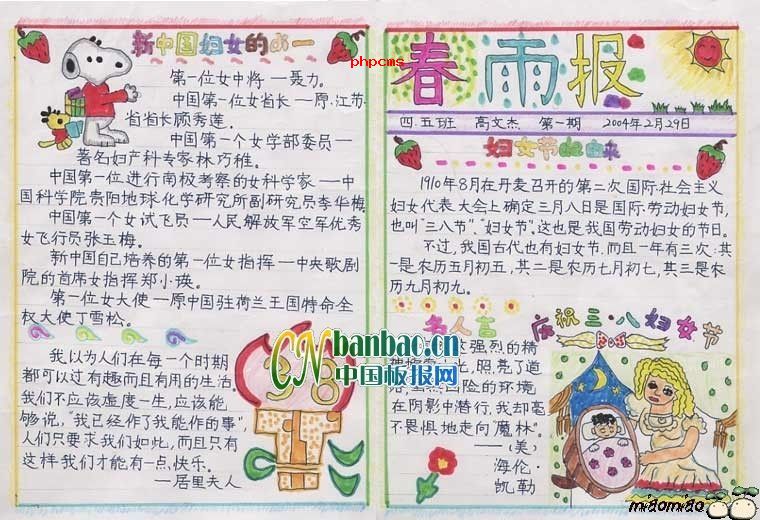 新中国妇女的di一
第一位女中将—聂力。
中国第一位女省长—原江苏
省省长顾秀莲。
中国第一个女学部委员—
著名妇产科专家林巧稚。
中国第一位进行南极考察的女科学家—中
国科学院贵阳地球化学研究所副研究员李华梅
中国第一个女试飞员—人民解放军空军优秀
女飞行员张玉梅。
新中国自己培养的第一位女指挥—中央歌剧
院的首席女指挥郑小瑛。
第一位女大使—原中国驻荷兰王国特命全
权大使丁雪松。
我以为人们在每一个时期
都可以过有趣而且有用的生活
我们不应该虚度一生,应该能
够说,“我已经作了我能作的事”,
人们只要求我们如此,而且只有
这样我们才能有一点,快乐。
—居里夫人
38
phpcms
春雨报
四.五班 高文杰 第一期 2004年2月29日
妇女节的由来
1910年8月在丹麦召开的第二次国际社会主义
妇女代表大会上确定三月八日是国际劳动妇女节,
也叫“三八节”、“妇女节”,这也是我国劳动妇女的节日。
不过,我国古代也有妇女节.而且一年有三次:其
一是农历五月初五,其二是农历七月初七,其三是农
历九月初九。
名人言
这强烈的精
光,照亮了道
险的环境,
在阴影中潜行,我却毫
不畏惧地走向“魔林”。
—(美)
海伦·
凯勒
庆祝三·八妇女节
CN banbao.cn
中国板报网
miaomiao